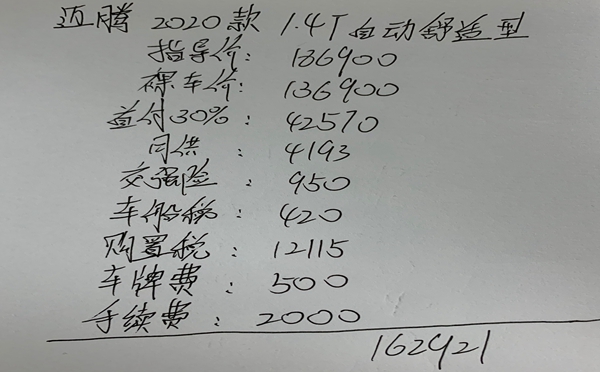 迈腾 2020款 1.4T自动舒适型
指导价: 186900
裸车价: 136900
首付30%: 42570
月供: 4193
交强险: 950
车船税: 420
购置税: 12115
车牌费: 500
手续费: 2000
162421